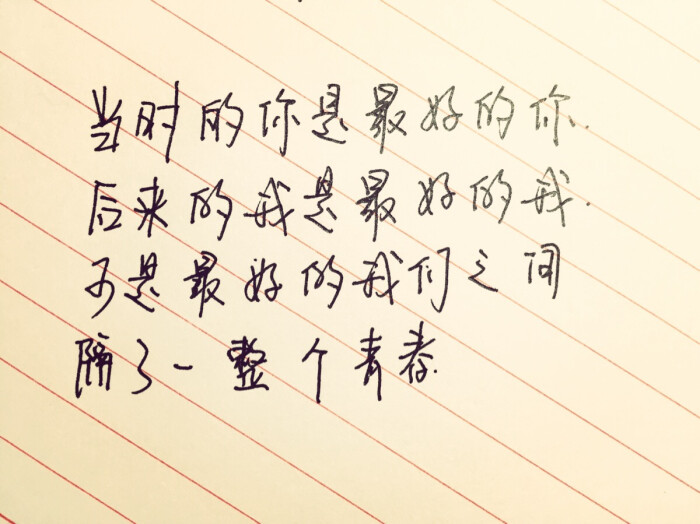 当时的你是最好的你.
后来的我是最好的我.
可是最好的我们之间
隔了一整个青春.